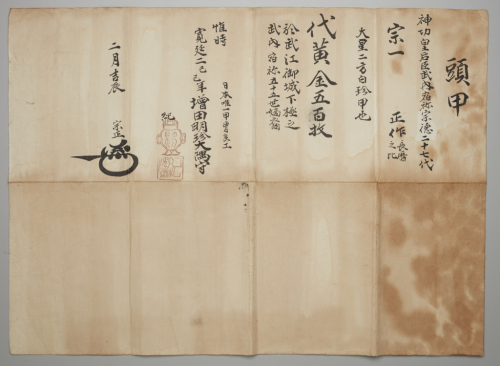 頭甲
神功皇后臣武内宿祢宗徳二十七代
宗一
正作
大星二方白珍甲也
代黄金五百枚
於武江御城下極之
武内宿祢五十五世嫡裔
日本唯一甲冑良工
惟時
寛延二己巳年増田明珍大隅守
紀
宗正
二月吉辰